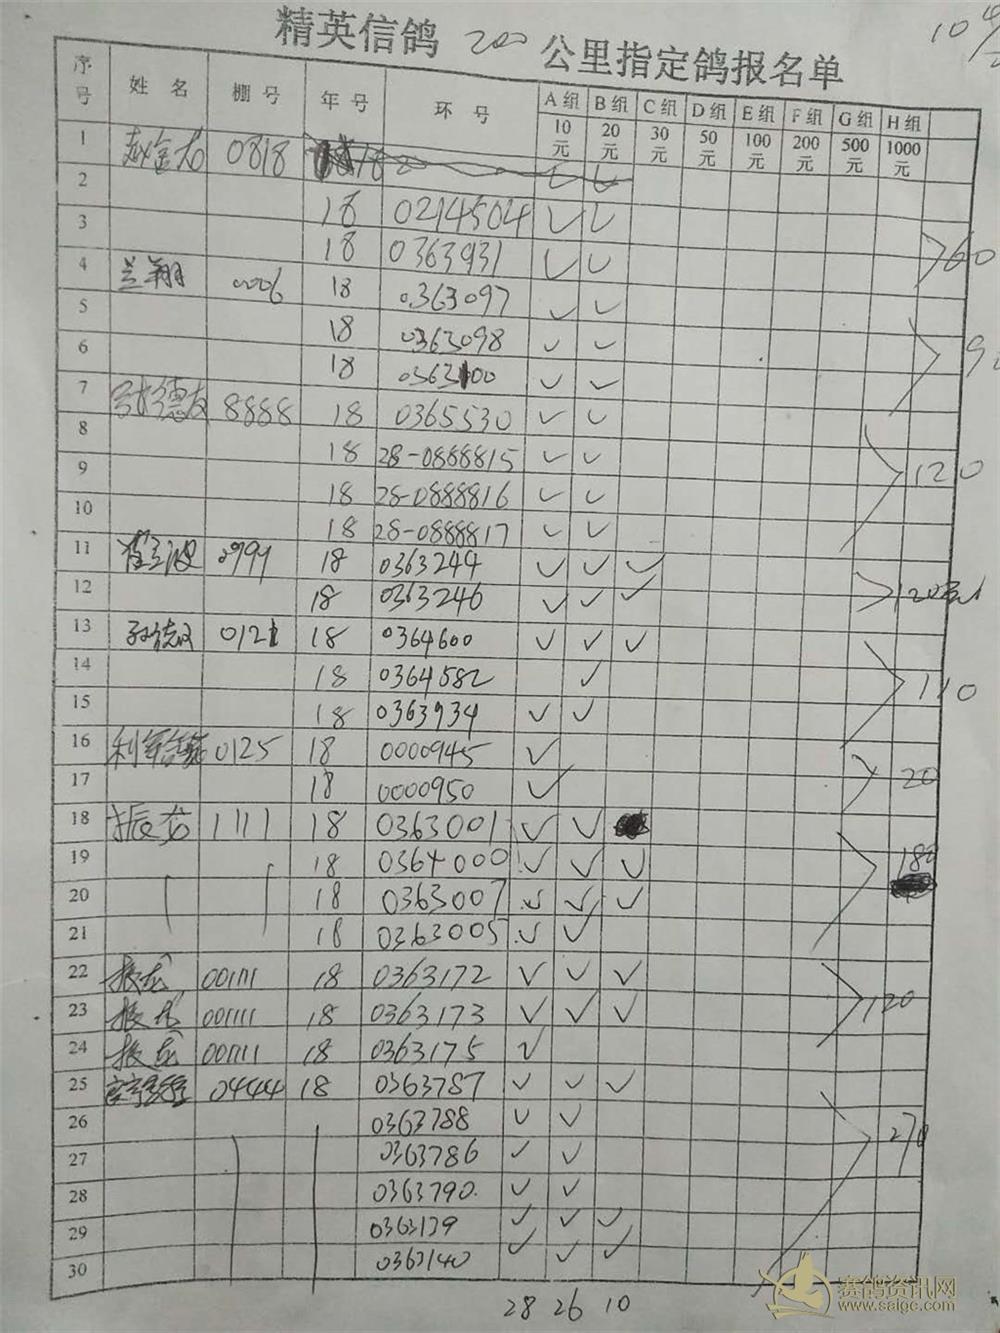 10
精英信鸽 200 公里指定鸽报名单
序号 姓名 棚号 年号 环号 A组 B组 C组 D组 E组 F组 G组 H组
10元 20元 30元 50元 100元 200元 500元 1000元
1 0818 18
2 18 0214504 ✓ ✓
3 18 0363931 ✓ ✓ 60
4 兰翔 0006 18 0363097 ✓ ✓
5 18 0363098 ✓ ✓
6 18 0363100 ✓ ✓
7 8888 18 0365530 ✓ ✓
8 18 28-0888815 ✓ ✓ 120
9 18 28-0888816 ✓ ✓
10 18 28-0888817 ✓ ✓
11 18 0363244 ✓ ✓ ✓
12 18 0363246 ✓ ✓ ✓ 120
13 0121 18 0364600 ✓ ✓ ✓
14 18 0364582 ✓ 110
15 18 0363934 ✓ ✓
16 0125 18 0000945 ✓
17 18 0000950 ✓ 20
18 振龙 1111 18 0363001 ✓ ✓
19 18 0364000 ✓ ✓ ✓ 180
20 18 0363007 ✓ ✓ ✓
21 18 0363005 ✓ ✓
22 振龙 001111 18 0363172 ✓ ✓ ✓
23 振龙 001111 18 0363173 ✓ ✓ ✓ 120
24 振龙 001111 18 0363175 ✓
25 04444 18 0363787 ✓ ✓ ✓
26 0363788 ✓ ✓ 270
27 0363786 ✓ ✓
28 0363790 ✓ ✓
29 0363139 ✓ ✓ ✓
30 0363140 ✓ ✓ ✓
28 26 10
赛鸽资讯网
www.saigc.com